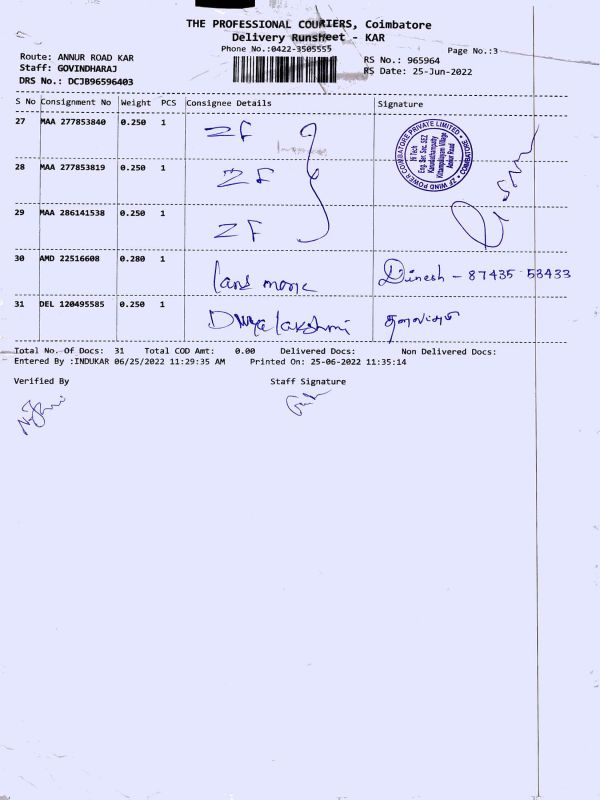 THE PROFESSIONAL COURIERS, Coimbatore
Delivery Runsheet - KAR
Phone No.:0422-3505555
Page No.:3
Route: ANNUR ROAD KAR
Staff: GOVINDHARAJ
DRS No.: DCJB96596403
RS No.: 965964
RS Date: 25-Jun-2022
S No Consignment No Weight PCS Consignee Details Signature
27 MAA 277853840 0.250 1 ZF
28 MAA 277853819 0.250 1 ZF
29 MAA 286141538 0.250 1 ZF
ZF WIND POWER COIMBATORE PRIVATE LIMITED. COIMBATORE
Hi Tech
Eng. Ser. Sec. SEZ
Kittampalayam Village
Annur Road
30 AMD 22516608 0.280 1 Dinesh - 87435 53433
31 DEL 120495585 0.250 1 Divya lakshmi
Total No. Of Docs: 31 Total COD Amt: 0.00 Delivered Docs: Non Delivered Docs:
Entered By :INDUKAR 06/25/2022 11:29:35 AM Printed On: 25-06-2022 11:35:14
Verified By Staff Signature